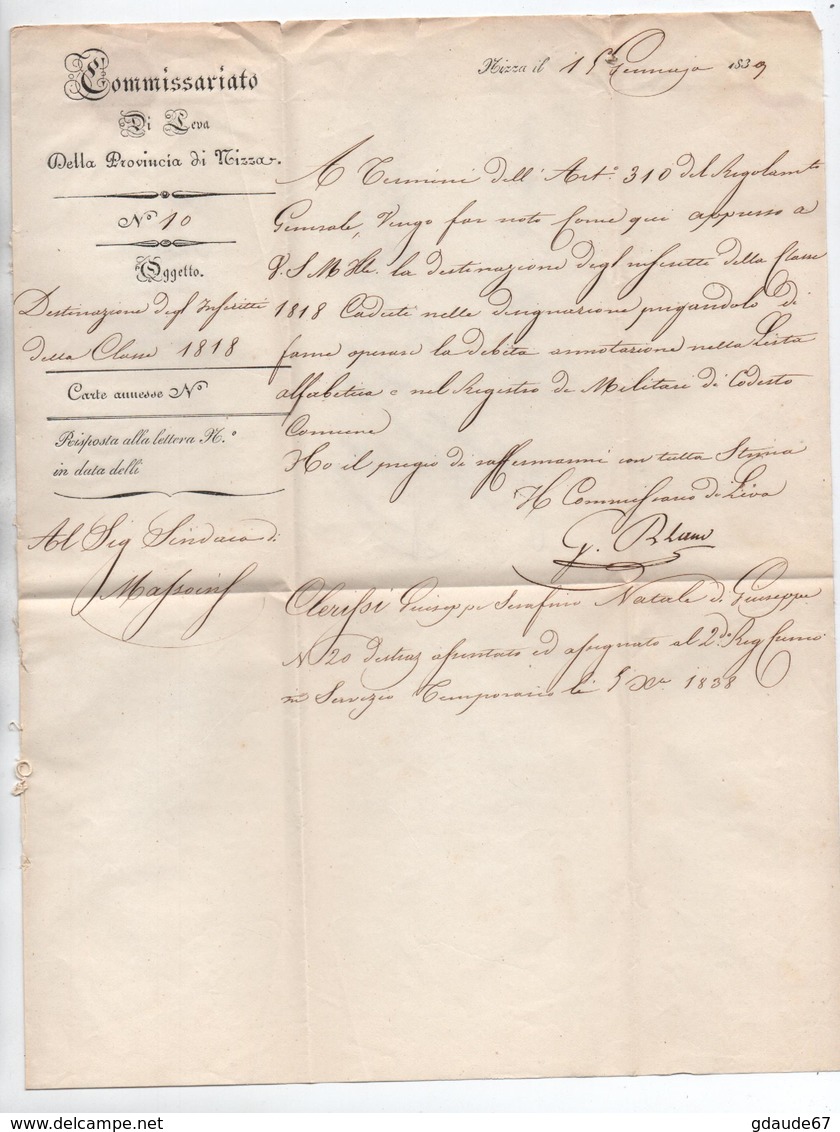 Commissariato
Di Leva
Della Provincia di Nizza.
N.º 10
Oggetto.
Destinazione degl' Inscritti
della Classe 1818
Carte annesse Nº
Risposta alla lettera N.º
in data delli
Al Sig Sindaco di
Massoins
Nizza il 15 Gennajo 1839
A Termini dell' Art.º 310 del Regolamto
Generale, Vengo far noto Come qui appresso a
V. S. M. Ile. la destinazione degl'inscritti della Classe
1818 Caduti nella designazione pregandolo di
farne operare la debita annotazione nella Lista
alfabetica e nel Registro de Militari di Codesto
Comune
Ho il pregio di raffermarmi con tutta Stima
Il Commissario di Leva
G.
Clerissi Giuseppe Serafino Natale di Giuseppe
N 20 assentato ed assegnato al 2.do Reg Cuneo
in Servizio Temporario li 5 Xbre 1838
gdaude67